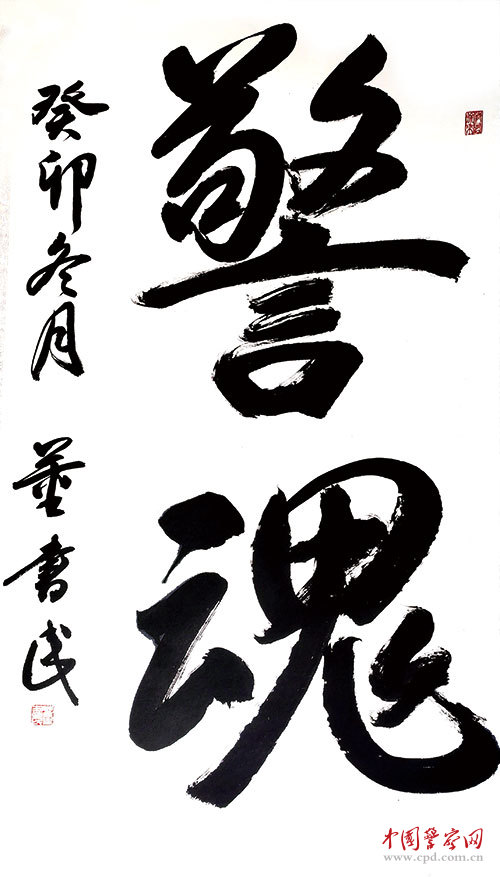 警魂
癸卯冬月
董書民
中国警察网
www.cpd.com.cn